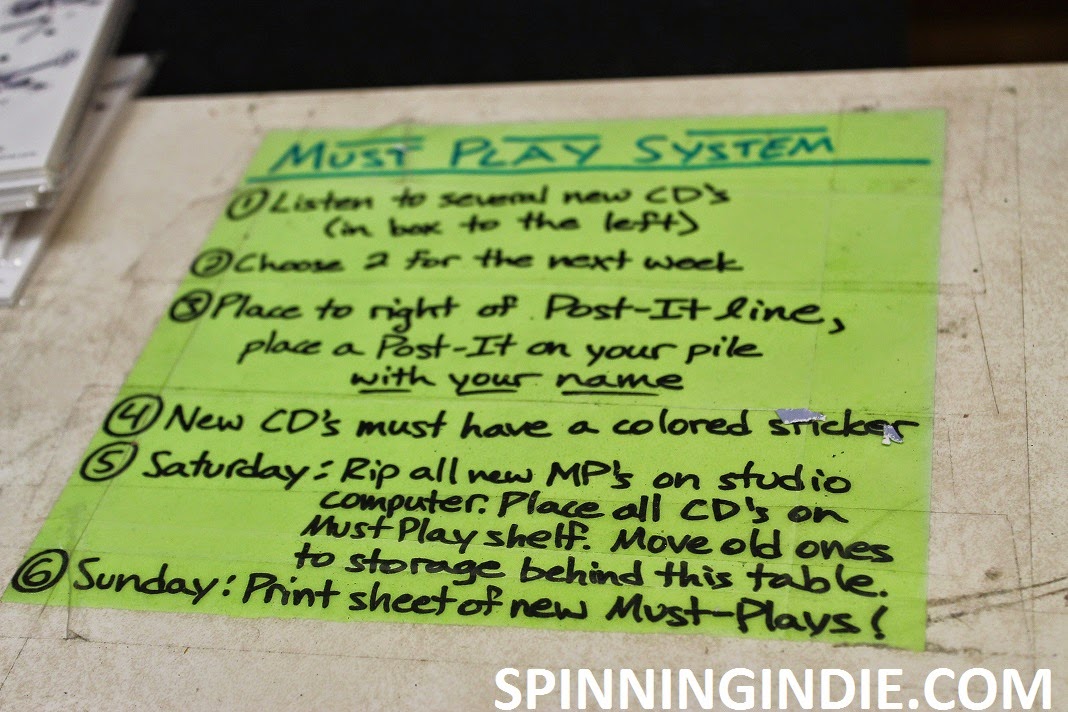 MUST PLAY SYSTEM
① Listen to several new CD's
(in box to the left)
② Choose 2 for the next week
③ Place to right of Post-It line,
place a Post-It on your pile
with your name
④ New CD's must have a colored sticker
⑤ Saturday: Rip all new MP's on studio
computer. Place all CD's on
Must Play shelf. Move old ones
to storage behind this table.
⑥ Sunday: Print sheet of new Must-Plays!
SPINNINGINDIE.COM